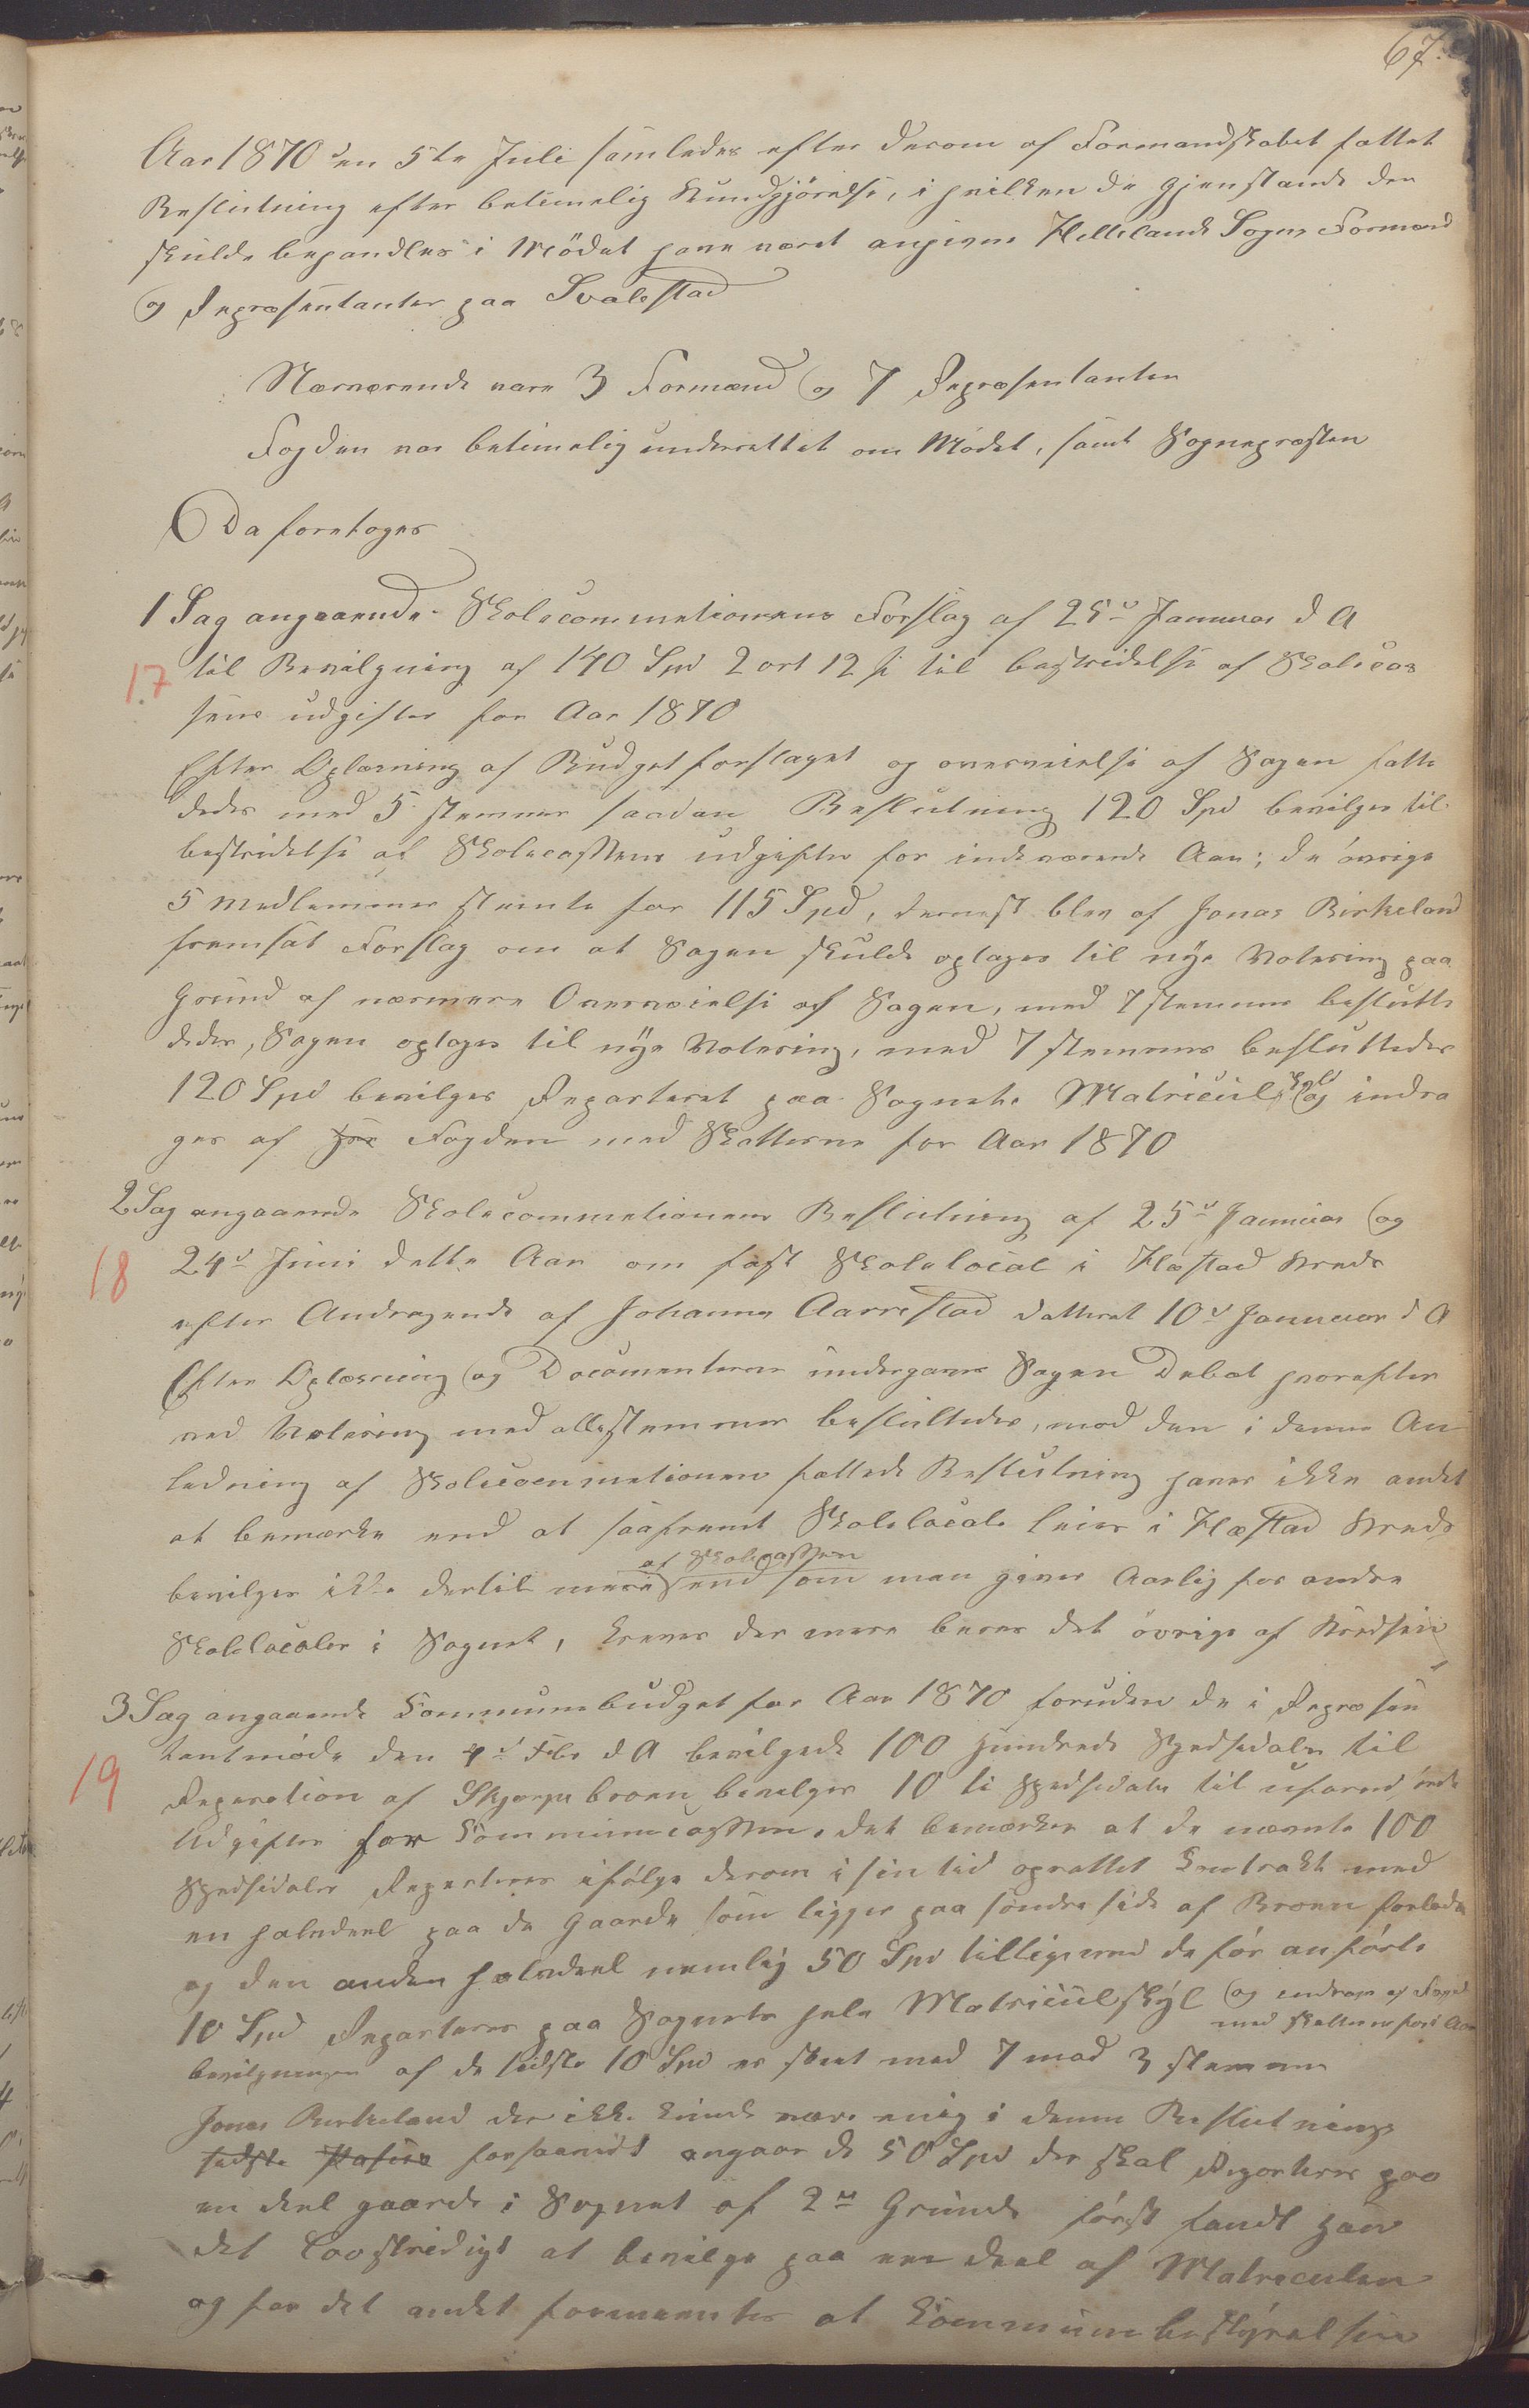 67.
Aar 1870 den 5te Juli samledes efter derom af Formandskabet fattet
Beslutning efter betimelig Kundgjörelse, i hvilken de gjenstande der
skulde behandles i Mödet have været angivne Hellelands Sogns Formænd
og Repræsentanter paa Svalestad
Nærværende vare 3 Formænd og 7 Repræsentanter
Fogden var betimelig underrettet om Mödet, samt Sognepræsten
Da foretoges
1 Sag angaaende Skolecommetionens Forslag af 25d Januar d A
17 til Bevilgning af 140 Spd 2 ort 12 s til bestridelse af Skolecas
sens udgifter for Aar 1870
Efter Oplæsning af Budgetforslaget og overveielse af Sagen fatte
dedes med 5 stemmer saadan Beslutning 120 Spd bevilges til
bestridelse af Skolecassens udgifter for indeværende Aar; de övrige
5 Medlemmer stemte for 115 Spd, dernest blev af Jonas Birkeland
fremsat Forslag om at Sagen skulde optages til nye Votering paa
Grund af nærmere Overveielse af Sagen, med 7 stemmer beslutte
dedes, Sagen optages til nye Votering, med 7 stemmer besluttedes
120 Spd bevilges Reparteret paa Sognets Matricul skyld og inddra
ges af Fogden med Skatterne for Aar 1870
2 Sag angaaende Skolecommetionens Beslutning af 25d Januar og
18 24d Juni dette Aar om fast Skolelocal i Hæstad Kreds
efter Andragende af Johannes Aarrestad datteret 10d Januar d A
Efter Oplæsning og Documenterne undergave Sagen Debat hvorefter
ved Votering med alle stemmer besluttedes, mod den i denne An
ledning af Skolecommetionen fattede Beslutning haves ikke andet
at bemærke end at saafremt Skolelocale leies i Hæstad Kreds
af Skolecassen
bevilges ikke dertil mere end som man giver Aarlig for andre
Skolelocaler i Sognet, kræves der mere beres det övrige af Kredsen
3 Sag angaaende Communebudget for Aar 1870 foruden de i Repræsen
19 tantmöde den 4d Febr d A bevilgede 100 hundrede Spedsidaler til
Reparation af Skjerpebroen bevilges 10 ti Spedsidaler til uforudseede
Udgifter for Communecassen, det bemærkes at de nævnte 100
Spedsidaler Reparteres ifölge derom i sin tid oprettet Contrakt med
en halvdeel paa de Gaarde som ligger paa söndre side af Broen
og den anden halvdeel nemlig 50 Spd tilligemed de för anförte
10 Spd Reparteres paa Sognets hele Matriculskyld og inddrages af Fogd
med Skatterne for i Aar
bevilgningen af de sidste 10 Spd er skeet med 7 mod 3 stemmer
Jonas Birkeland der ikke kunde være enig i denne Beslutnings
sidste forsaavidt angaar de 50 Spd der skal Reparteres paa
en deel gaarde i Sognet af 2de Grunde först fandt han
det Lovstridigt at bevilge paa een deel af Matriculen
og for det andet formentes at Communebestyrelsen